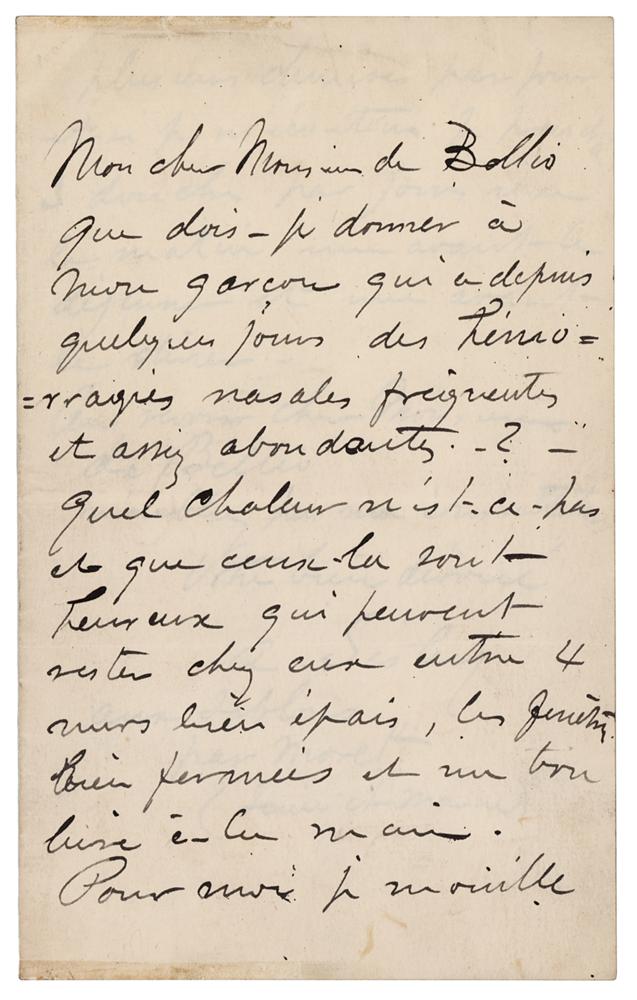 Mon cher Monsieur de Bellio
que dois-je donner à
mon garçon qui a depuis
quelques jours des hémo=
=rragies nasales fréquentes
et assez abondantes. - ? -
Quel chaleur n'est-ce-pas
et que ceux-là sont
heureux qui peuvent
rester chez eux entre 4
murs bien épais, les fenêtres
bien fermées et un bon
livre à la main.
Pour moi je mouille